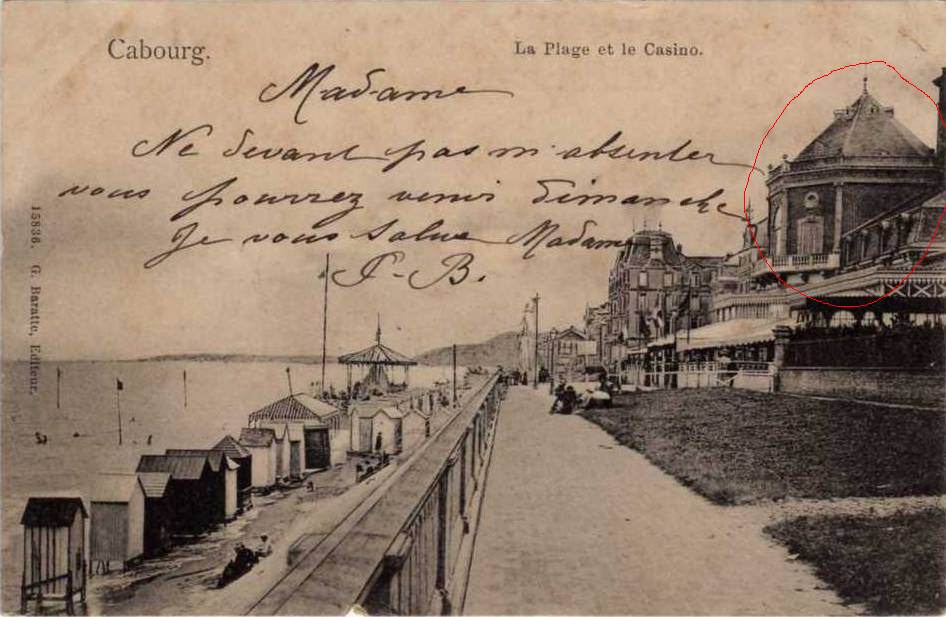 Cabourg.
La Plage et le Casino.
Madame
Ne devant pas m'absenter
vous pourrez venir dimanche
Je vous salue Madame
P-B.
15836. G. Baratte, Editeur.